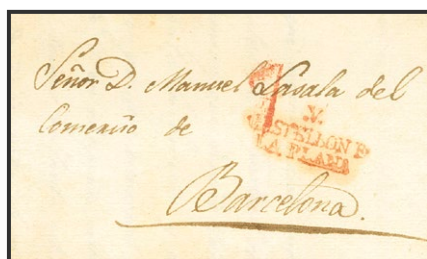 Señor D. Manuel Lasala del
Comercio de
V.
CASTELLON D
LA PLANA
Barcelona.